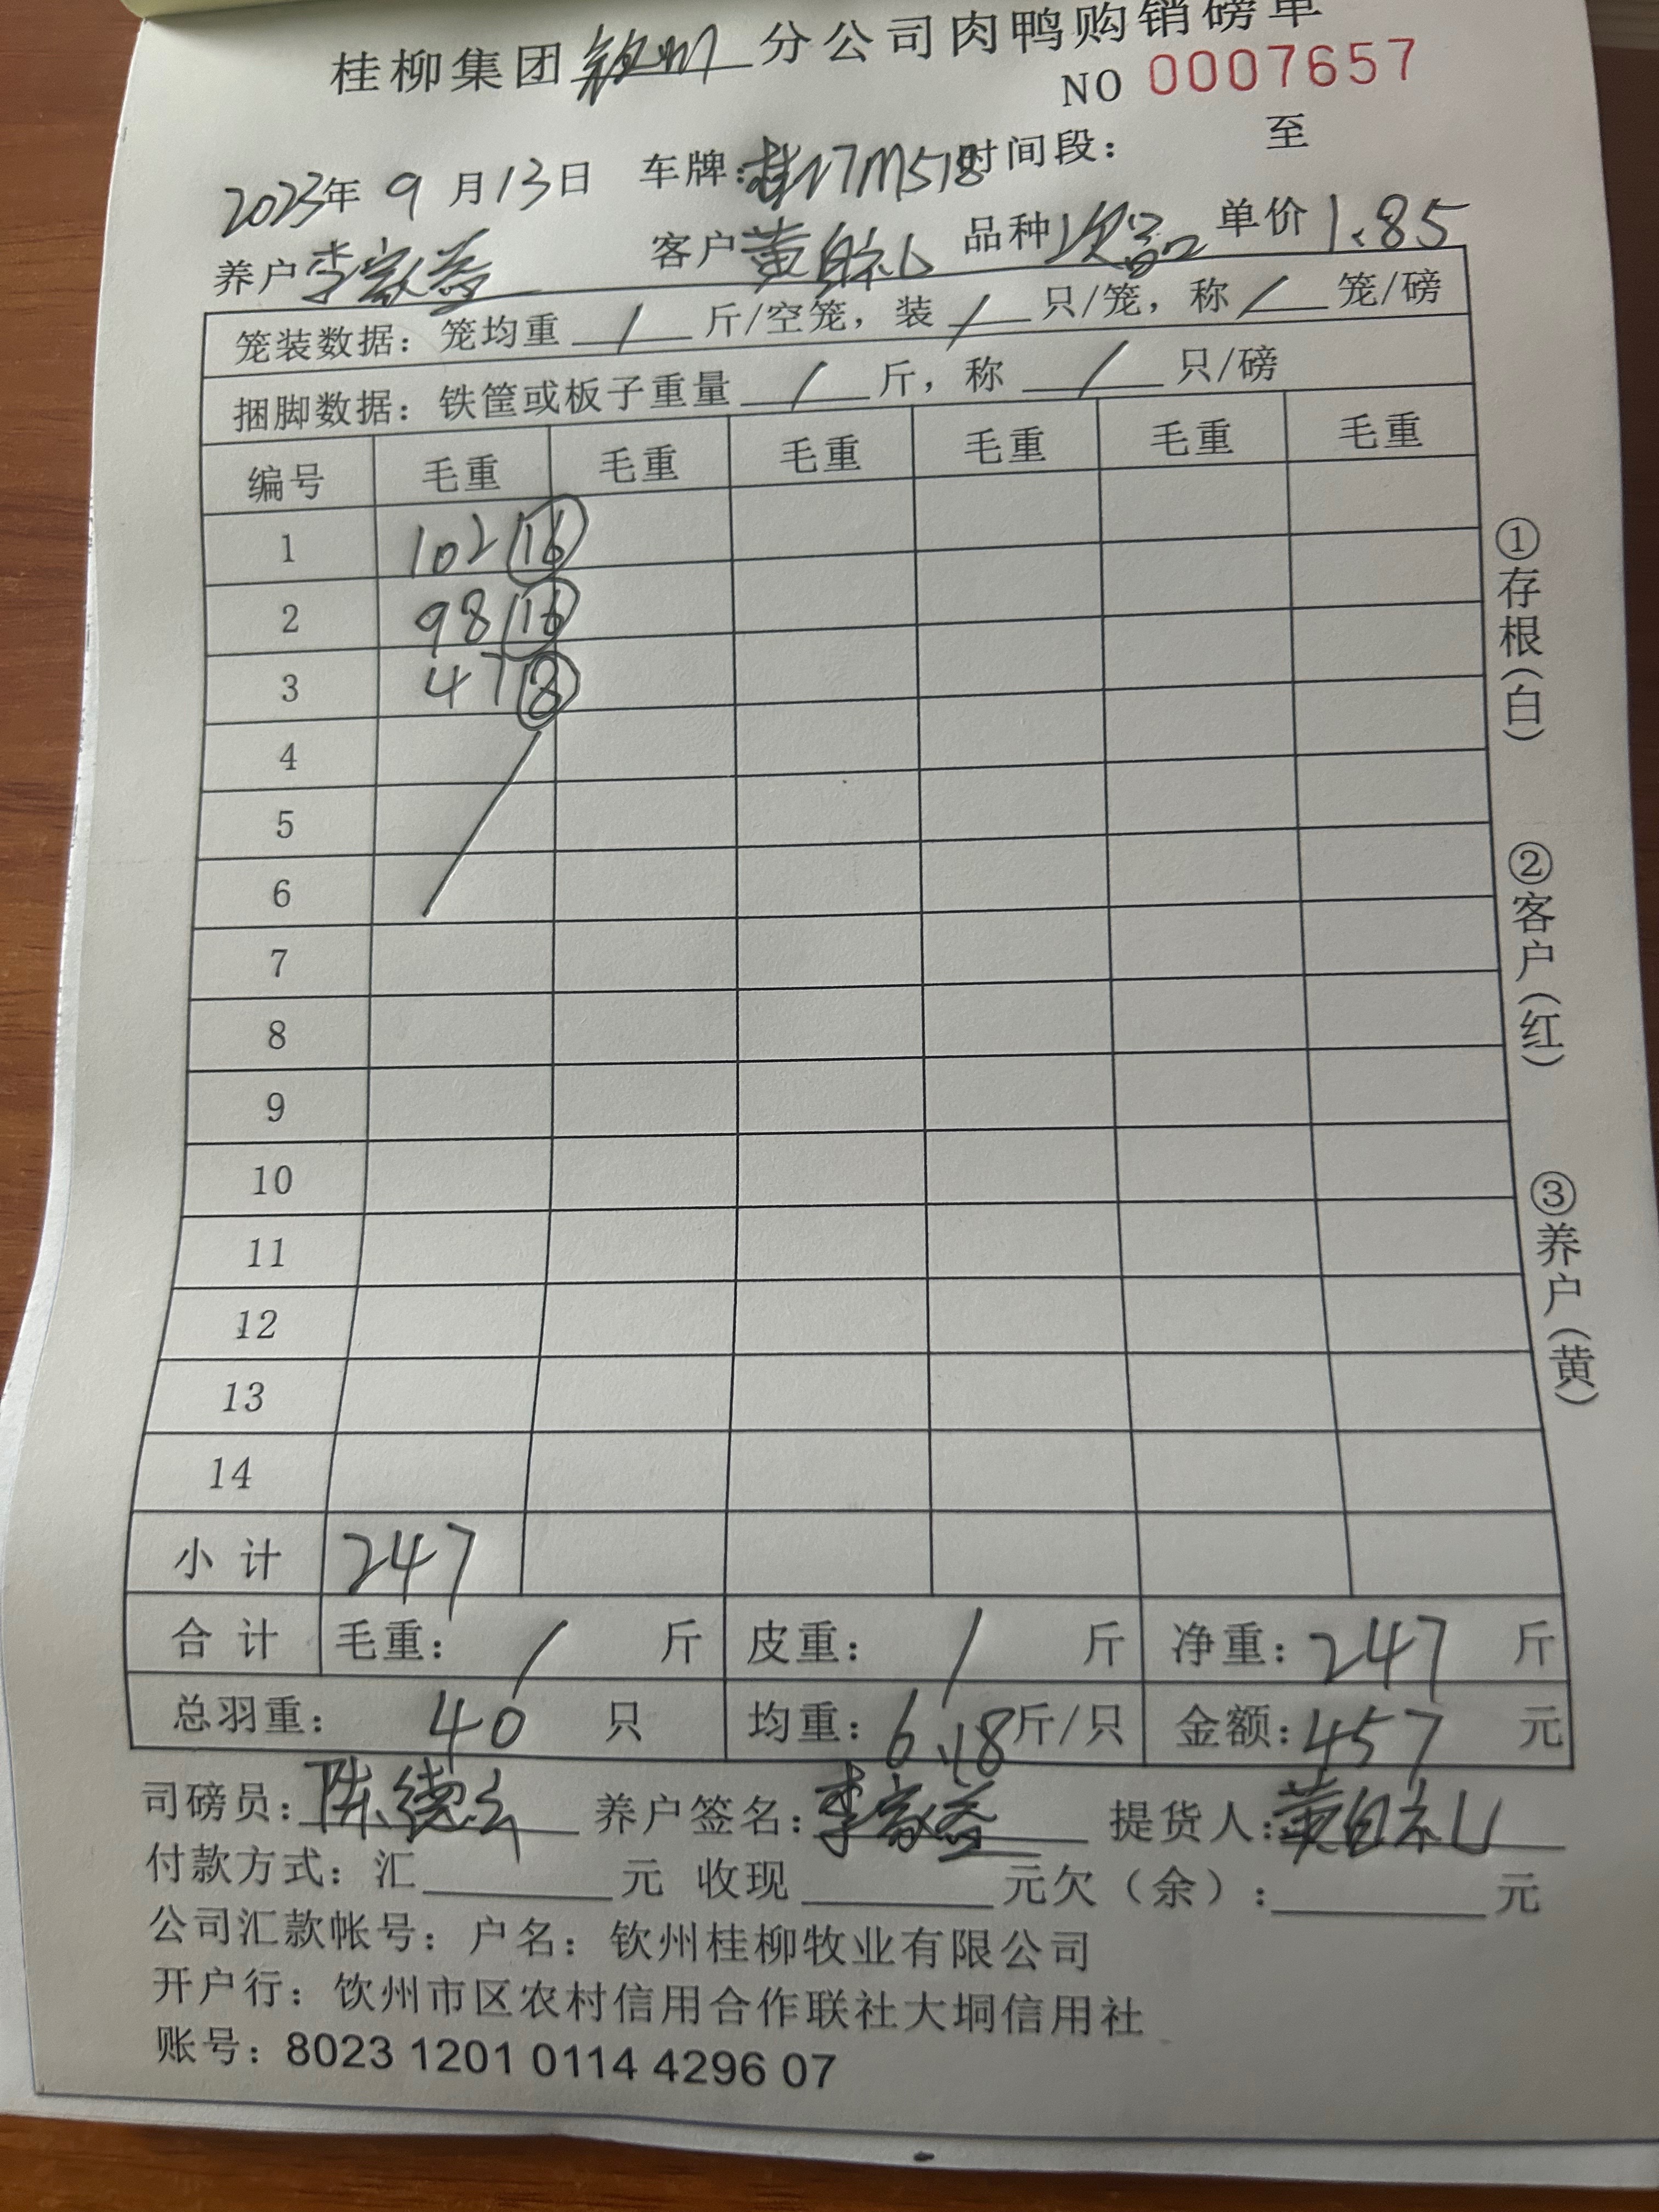 桂柳集团钦州分公司肉鸭购销磅单
NO 0007657
2023年 9 月 13 日 车牌:桂N7M518 时间段: 至
养户 李家益 客户 黄自礼 品种 次品 单价 1.85
笼装数据: 笼均重 / 斤/空笼, 装 / 只/笼, 称 / 笼/磅
捆脚数据: 铁筐或板子重量 / 斤, 称 / 只/磅
编号 毛重 毛重 毛重 毛重 毛重 毛重
1 102 16
2 98 16
3 47 8
4
5
6
7
8
9
10
11
12
13
14
小计 247
合计 毛重: / 斤 皮重: / 斤 净重: 247 斤
总羽重: 40 只 均重: 6.18 斤/只 金额: 457 元
司磅员: 陈德 养户签名: 李家益 提货人: 黄自礼
付款方式: 汇 元 收现 元欠(余): 元
公司汇款帐号: 户名: 钦州桂柳牧业有限公司
开户行: 钦州市区农村信用合作联社大垌信用社
账号: 8023 1201 0114 4296 07
①存根(白)
②客户(红)
③养户(黄)